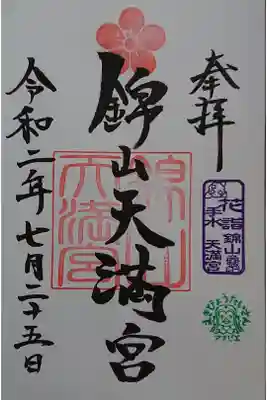 奉拝
錦山天満宮
令和二年七月二十五日
錦山
天満宮
花詣
錦山
天満宮
アマビエ